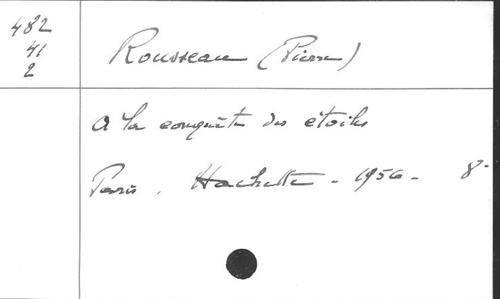 482
41
2
Rousseau (Pierre)
A la conquête des étoiles
Paris. Hachette - 1956 - 8°